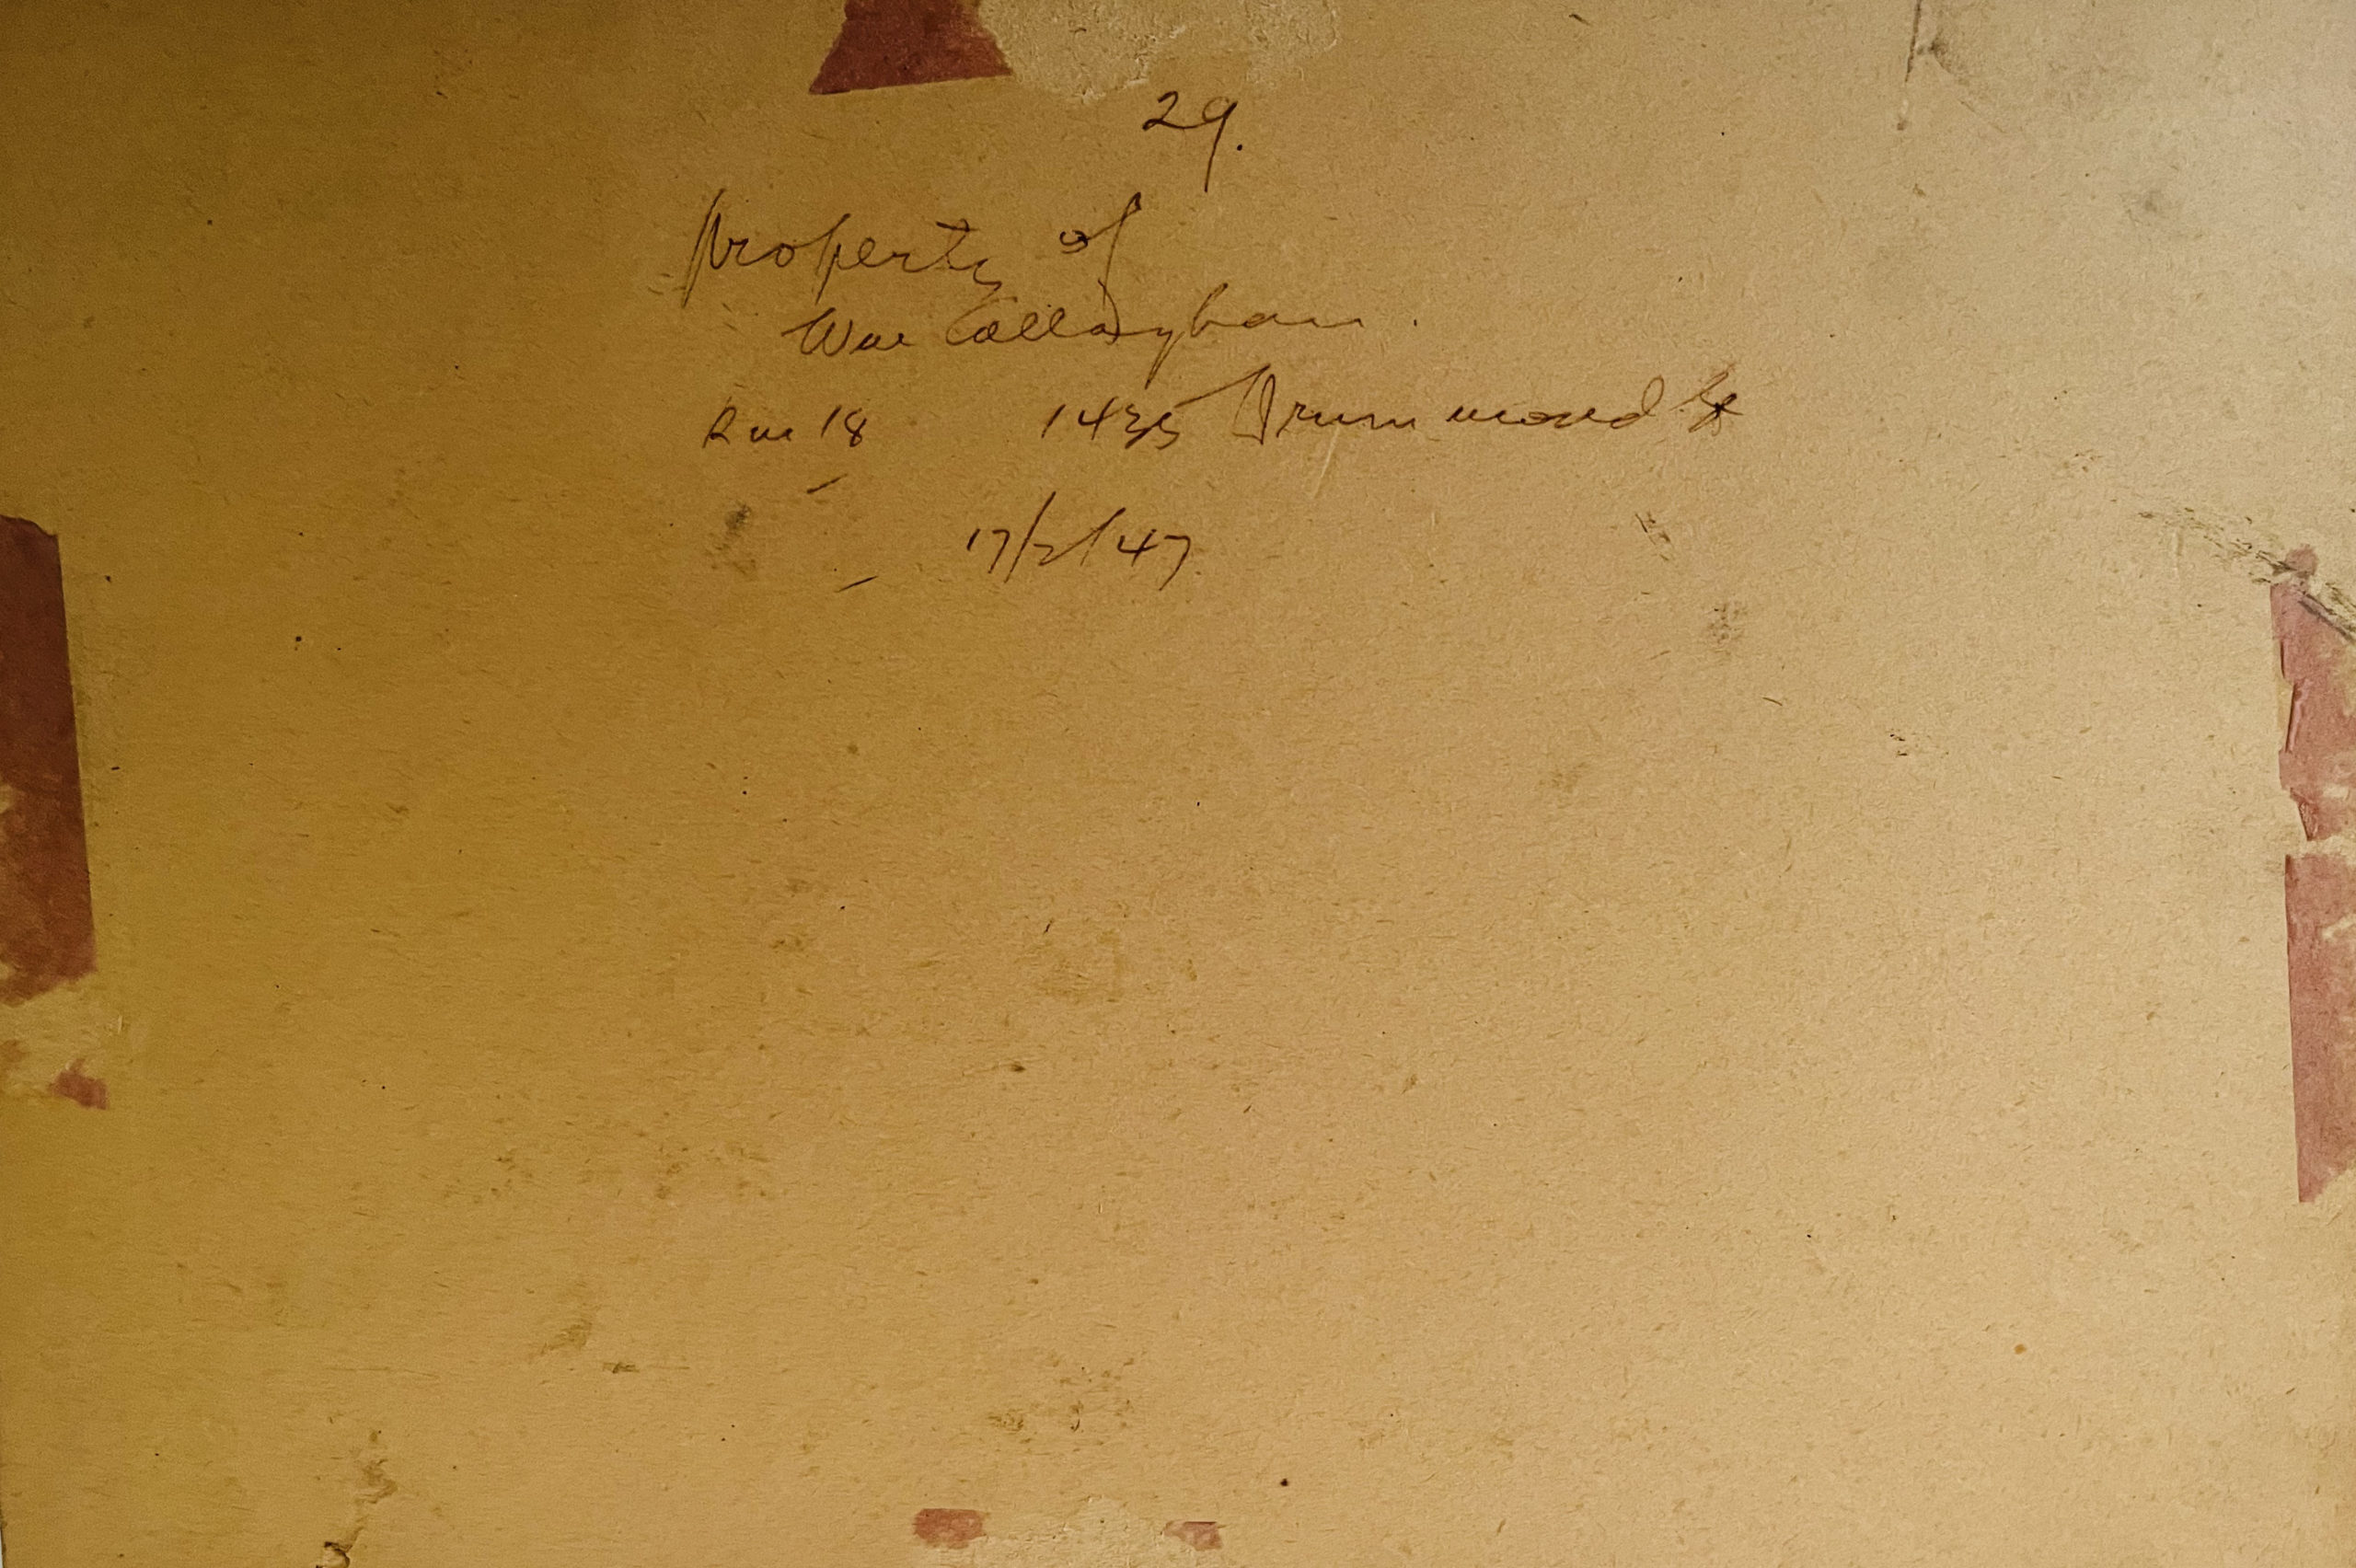 29.
Property of
Wm Callaghan.
Rm 18 1435 Drummond St
17/2/47